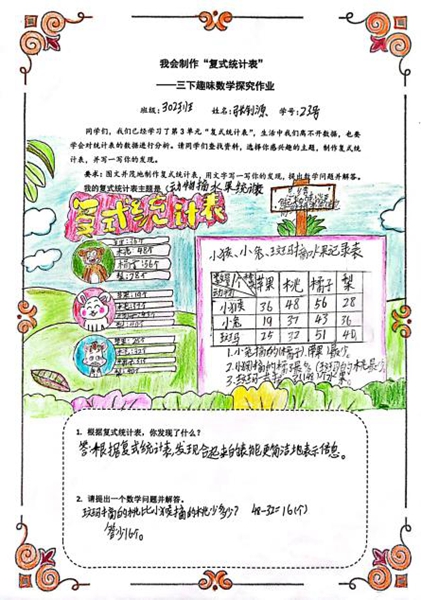 我会制作“复式统计表”
——三下趣味数学探究作业
班级：302班 姓名： 学号：23号
同学们，我们已经学习了第3单元“复式统计表”，生活中我们离不开数据，也要
学会对统计表的数据进行分析。请同学们查找资料，选择你感兴趣的主题，制作复式统
计表，并写一写你的发现。
要求：图文并茂地制作复式统计表，用文字写一写你的发现，提出数学问题并解答。
我的复式统计表主题是（动物摘水果统计表
复式统计表
小猴、小兔、斑马摘水果记录表
苹果 桃 橘子 梨
动物
小猴 36 48 56 28
小兔 19 37 43 36
斑马 25 32 51 45
1.小兔摘的 苹果最少
2.小猴摘的 最多
3.斑马
1. 根据复式统计表，你发现了什么？
答：根据复式统计表，发现合起来的表能更简洁地表示信息。
2. 请提出一个数学问题并解答。
斑马摘的桃比小猴摘的桃少多少？ 48-32=16(个)
答：少16个。